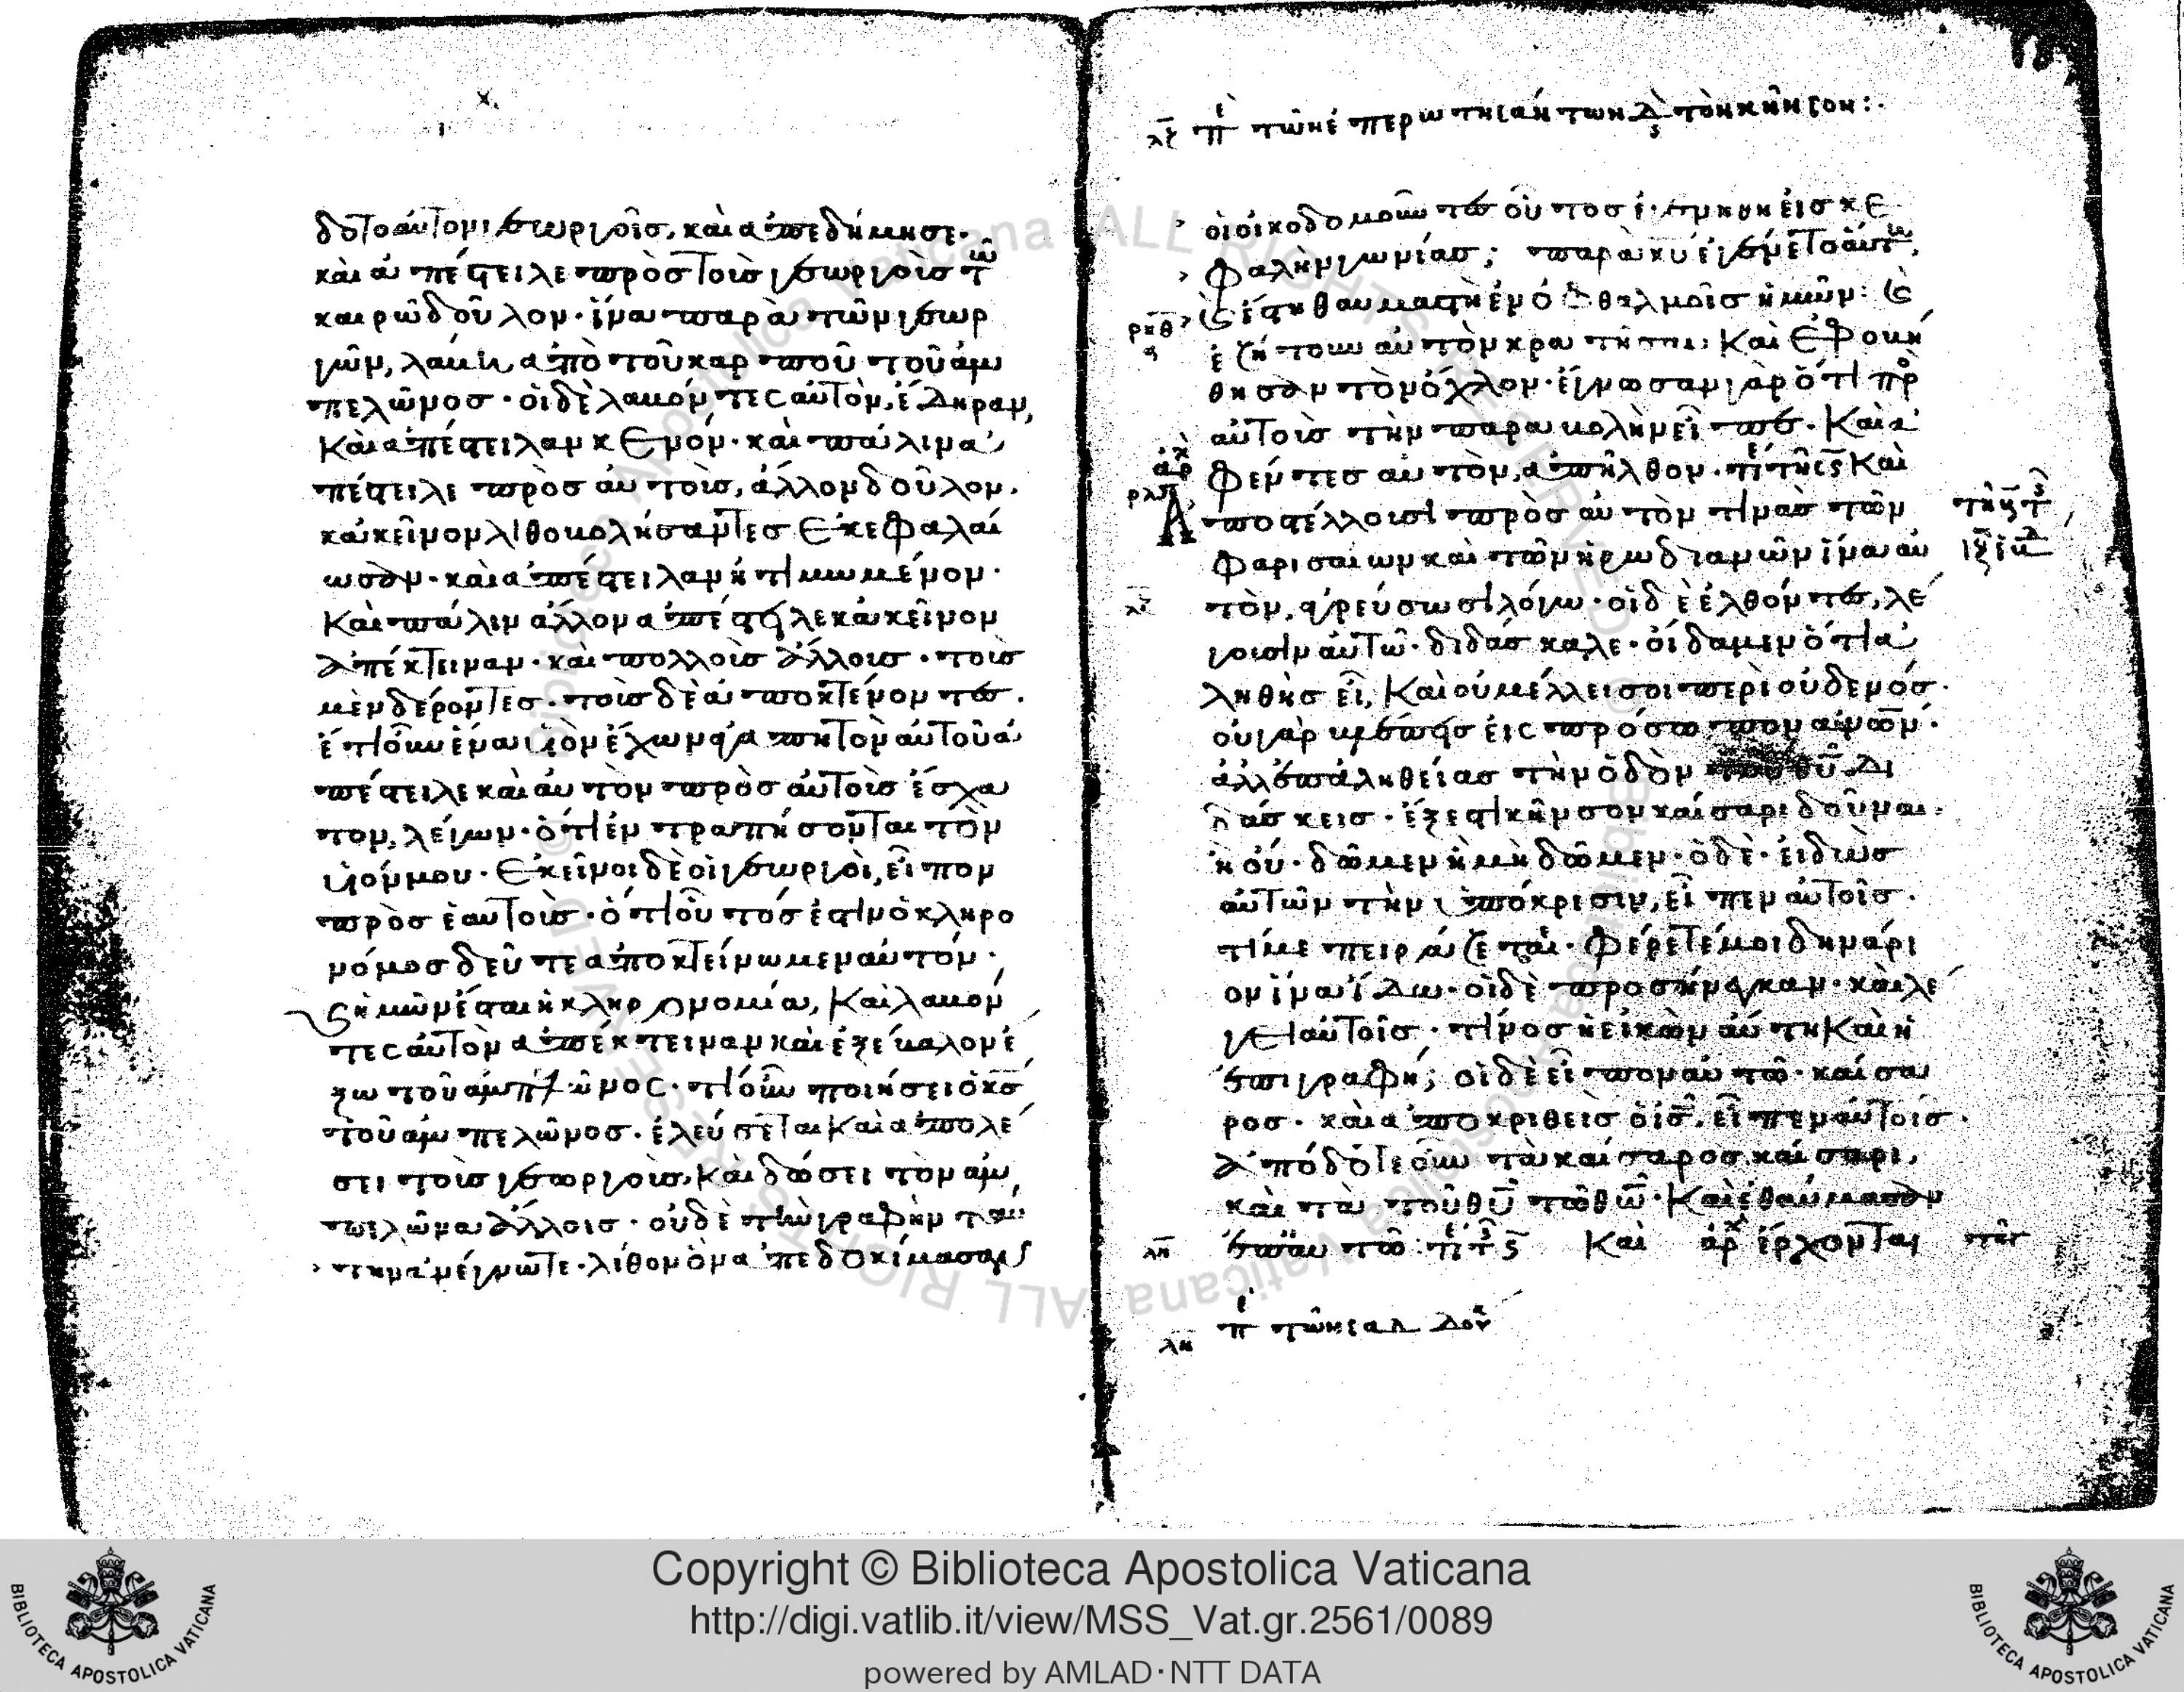 δοτο αὐτὸν γεωργοῖς, καὶ ἀπεδήμησε.
καὶ ἀπέστειλε πρὸς τοὺς γεωργοὺς τῶ
καιρῶ δοῦλον· ἵνα παρὰ τῶν γεωρ
γῶν, λάβη ἀπὸ τοῦ καρποῦ τοῦ ἀμ
πελῶνος· οἱ δὲ λαβόντες αὐτὸν, ἔδηραν,
Καὶ ἀπέστειλαν κενόν· καὶ πάλιν ἀ
πέστειλε πρὸς αὐτοὺς, ἄλλον δοῦλον.
κἀκεῖνον λιθοβολήσαντες ἐκεφαλαί
ωσαν· καὶ ἀπέστειλαν ἠτιμωμένον·
Καὶ πάλιν ἄλλον ἀπέστειλε κἀκεῖνον
ἀπέκτειναν· καὶ πολλοὺς ἄλλους· τοὺς
μὲν δέροντες· τοὺς δὲ ἀποκτένοντες.
ἔτι οὖν ἕνα υἱὸν ἔχων ἀγαπητὸν αὐτοῦ ἀ
πέστειλε καὶ αὐτὸν πρὸς αὐτοὺς ἔσχα
τον, λέγων· ὅτι ἐντραπήσονται τὸν
υἱόν μου· Ἐκεῖνοι δὲ οἱ γεωργοὶ, εἶπον
πρὸς ἑαυτοὺς· ὅτι οὗτός ἐστιν ὁ κληρο
νόμος δεῦτε ἀποκτείνωμεν αὐτόν·
καὶ ἡμῶν ἔσται ἡ κληρονομία, Καὶ λαβόν
τες αὐτὸν ἀπέκτειναν καὶ ἐξέβαλον ἔ
ξω τοῦ ἀμπελῶνος· τί οὖν ποιήσει ὁ κς
τοῦ ἀμπελῶνος· ἐλεύσεται Καὶ ἀπολέ
σει τοὺς γεωργοὺς, Καὶ δώσει τὸν ἀμ
πελῶνα ἄλλοις· οὐδὲ τὴν γραφὴν ταύ
την ἀνέγνωτε· λίθον ὃν ἀπεδοκίμασαν
λζ π τῶν ἐπερωτησάντων διὰ τὸν κῆνσον:.
οἱ οἰκοδομοῦντες οὗτος ἐγενήθη εἰς κε
φαλὴν γωνίας; παρὰ κυ ἐγένετο αὕτη,
ρκθ Καὶ ἔστι θαυμαστὴ ἐν ὀφθαλμοῖς ἡμῶν: Καὶ
ἐζήτουν αὐτὸν κρατῆσαι· Καὶ ἐφοβή
θησαν τὸν ὄχλον· ἔγνωσαν γὰρ ὅτι πρ
αὐτοὺς τὴν παραβολὴν εἶπε. Καὶ ἀ
φέντες αὐτὸν, ἀπῆλθον. Καὶ
ρλ Ἀποστέλλουσι πρὸς αὐτὸν τινὰς τῶν
Φαρισαίων καὶ τῶν ἡρωδιανῶν ἵνα αὐ
λζ τὸν, ἀγρεύσωσι λόγω· οἱ δὲ ἐλθόντες, λέ
γουσιν αὐτῶ· διδάσκαλε· οἴδαμεν ὅτι ἀ
ληθὴς εἶ, Καὶ οὐ μέλλει σοι περὶ οὐδενός.
οὐ γὰρ βλέπεις εἰς πρόσωπον ἀνων.
ἀλλ' ἐπ' ἀληθείας τὴν ὁδὸν τοῦ θυ δι
δάσκεις· ἔξεστι κῆνσον καίσαρι δοῦναι.
ἢ οὔ· δῶμεν ἢ μὴ δῶμεν· ὁ δὲ· εἰδὼς
αὐτῶν τὴν ὑπόκρισιν, εἶπεν αὐτοῖς.
τί με πειράζετε· φέρετέ μοι δηνάρι
ον ἵνα ἴδω· οἱ δὲ προσήνεγκαν· καὶ λέ
γει αὐτοῖς· τίνος ἡ εἰκὼν αὕτη Καὶ ἡ
ἐπιγραφή; οἱ δὲ εἶπον αὐτῶ· καίσα
ρος· καὶ ἀποκριθεὶς ὁ ις, εἶπεν αὐτοῖς.
ἀπόδοτε οὖν τὰ καίσαρος καίσαρι,
καὶ τὰ τοῦ θυ τῶ θω· Καὶ ἐθαύμασαν
λη ἐπ' αὐτῶ: Καὶ ἔρχονται
λη π τῶν σαδδου